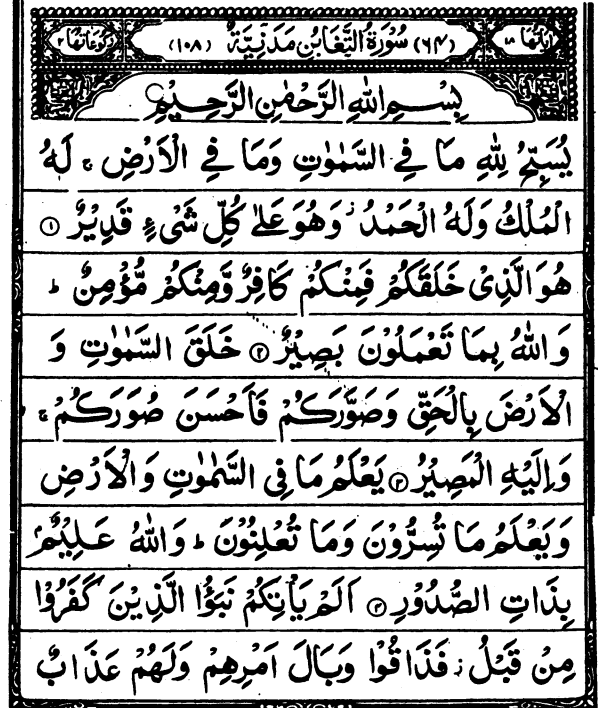 اٰيَاتُهَا ١٨ (٦٤) سُوْرَةُ التَّغَابُنِ مَدَنِيَّةٌ (١٠٨) رُكُوْعَاتُهَا ٢
بِسْمِ اللّٰهِ الرَّحْمٰنِ الرَّحِيْمِ
يُسَبِّحُ لِلّٰهِ مَا فِي السَّمٰوٰتِ وَمَا فِي الْاَرْضِ ۚ لَهُ
الْمُلْكُ وَلَهُ الْحَمْدُ ؗ وَهُوَ عَلٰى كُلِّ شَيْءٍ قَدِيْرٌ ﴿١﴾
هُوَ الَّذِيْ خَلَقَكُمْ فَمِنْكُمْ كَافِرٌ وَّمِنْكُمْ مُّؤْمِنٌ ؕ
وَاللّٰهُ بِمَا تَعْمَلُوْنَ بَصِيْرٌ ﴿٢﴾ خَلَقَ السَّمٰوٰتِ وَ
الْاَرْضَ بِالْحَقِّ وَصَوَّرَكُمْ فَاَحْسَنَ صُوَرَكُمْ ۚ
وَاِلَيْهِ الْمَصِيْرُ ﴿٣﴾ يَعْلَمُ مَا فِي السَّمٰوٰتِ وَالْاَرْضِ
وَيَعْلَمُ مَا تُسِرُّوْنَ وَمَا تُعْلِنُوْنَ ؕ وَاللّٰهُ عَلِيْمٌۢ
بِذَاتِ الصُّدُوْرِ ﴿٤﴾ اَلَمْ يَاْتِكُمْ نَبَؤُا الَّذِيْنَ كَفَرُوْا
مِنْ قَبْلُ ؗ فَذَاقُوْا وَبَالَ اَمْرِهِمْ وَلَهُمْ عَذَابٌ